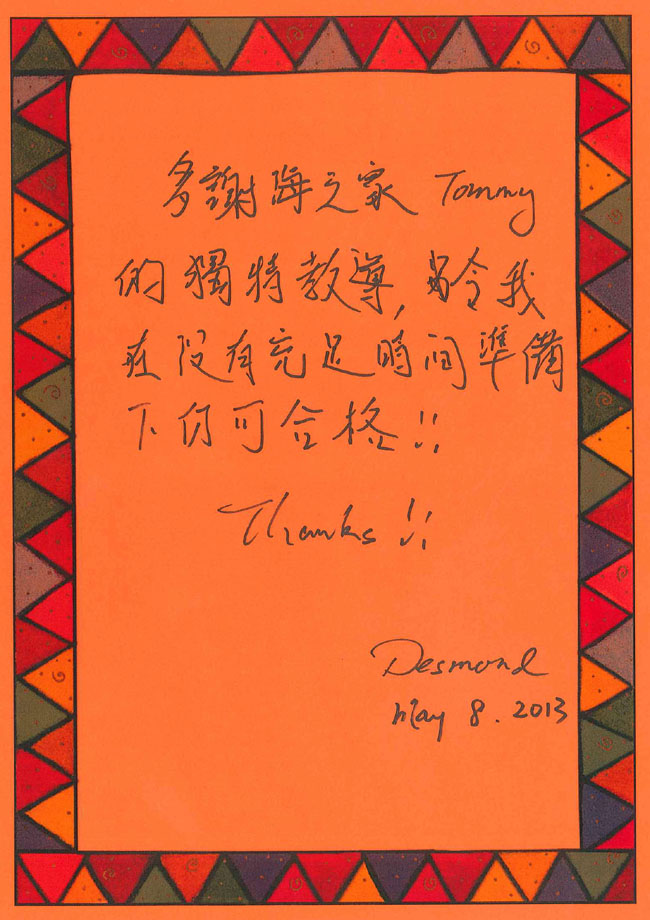 多謝海之家 Tommy
的獨特教導, 令我
在沒有充足時間準備
下仍可合格!!
Thanks !!
Desmond
May 8. 2013